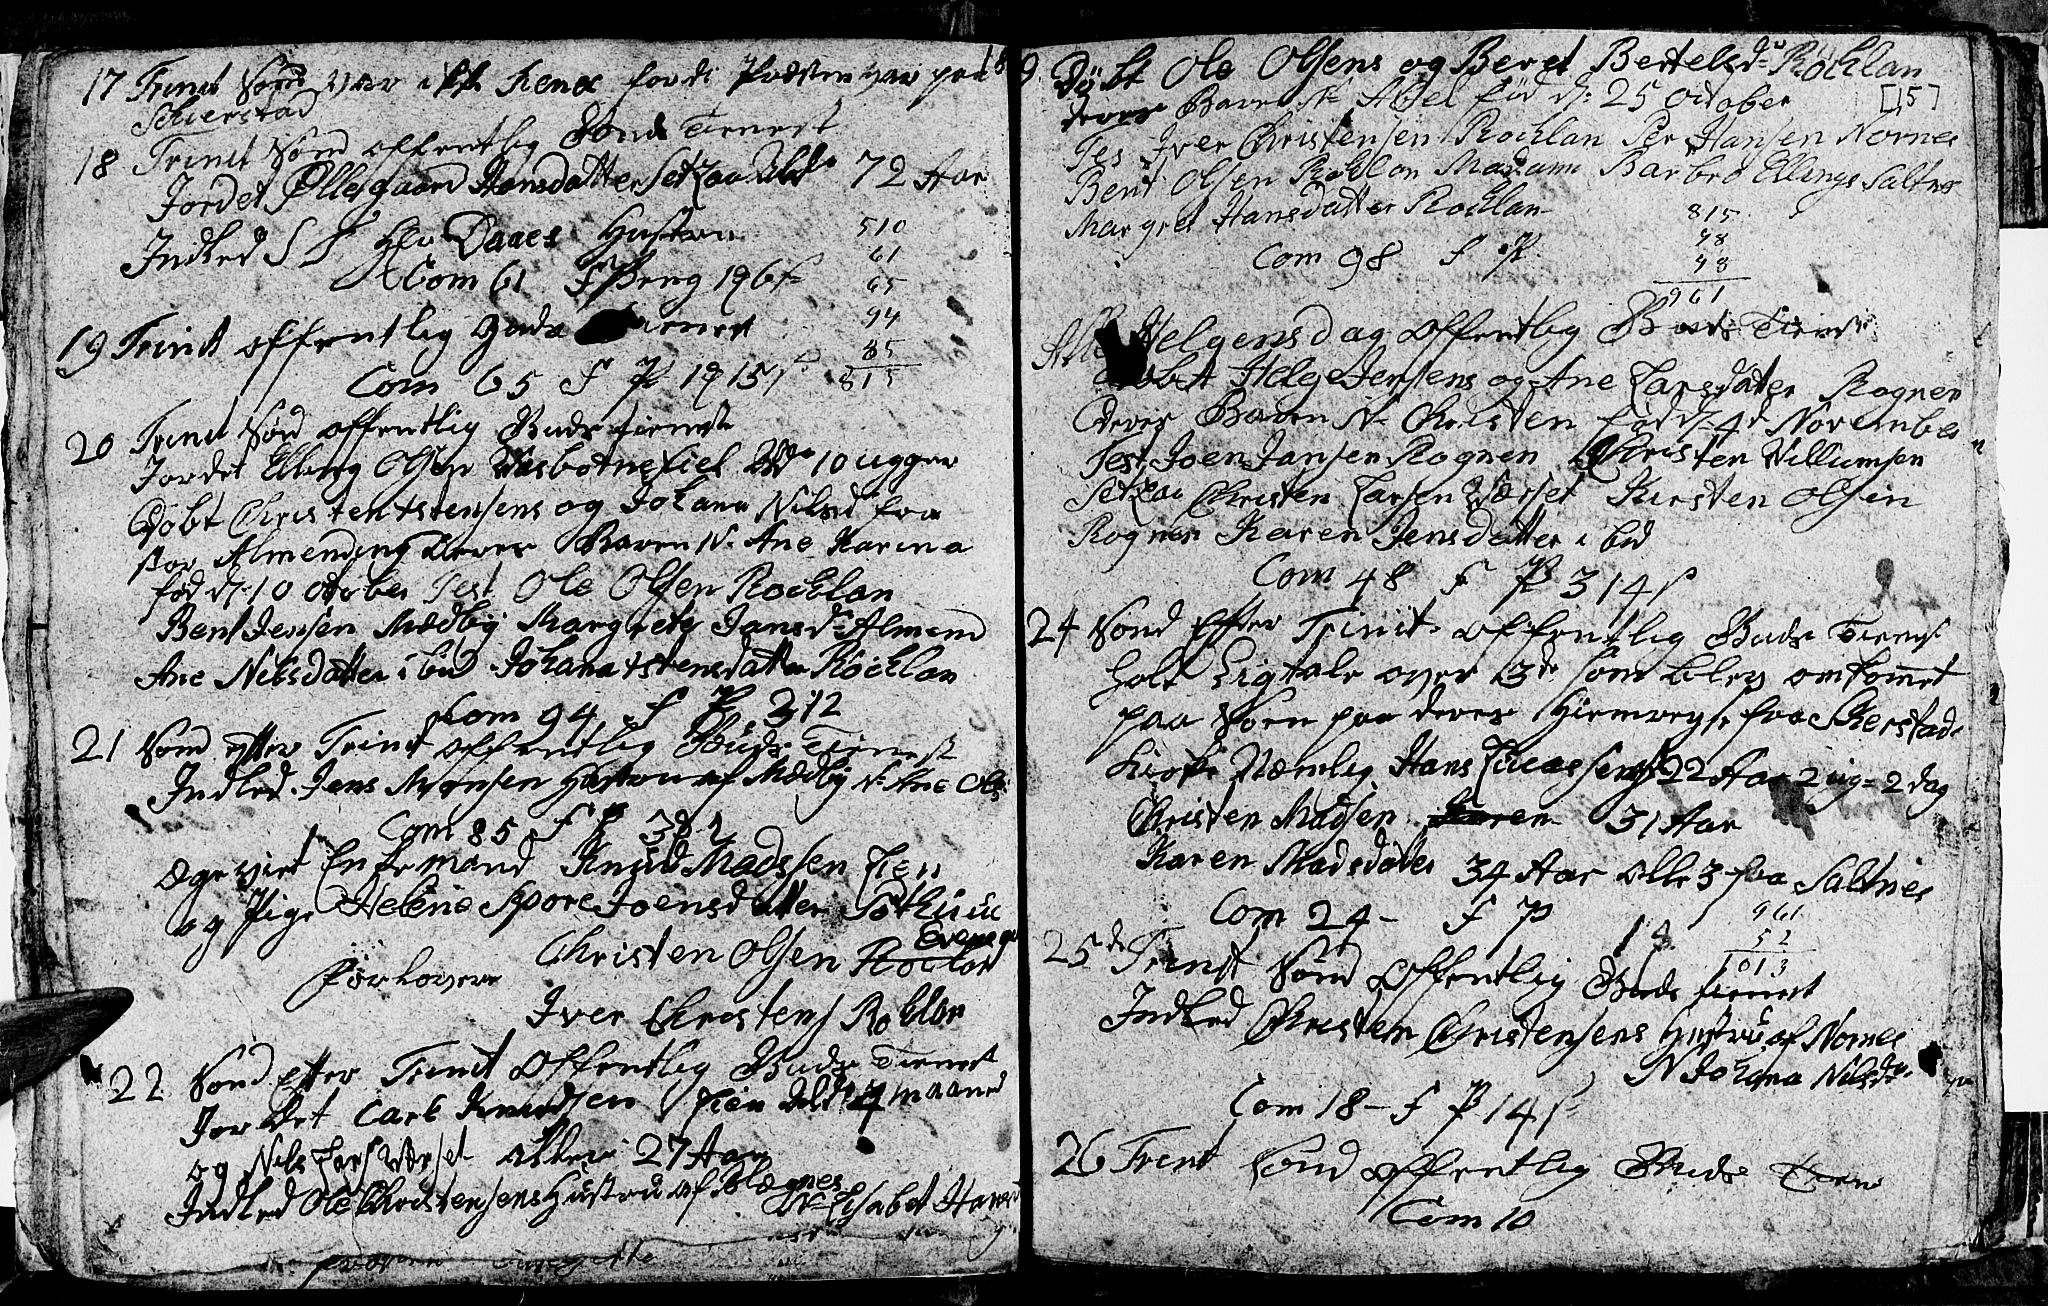 17 Trinit Sønd var i fordi Præsten var paa
Schierstad
18 Trinit Sønd offentlig Guds Tienest
Jordet Ellegaard Hansdatter Setzaa 72 Aar
Indled S S Hr Daaes Hustroe
510
Com 61 F Peng 1961
61
65
19 Trinit offentlig Guds Tienest
94
85
Com 65 F P 1915
815
20 Trinit Sønd offentlig Guds tienest
Jordet Elling Olsen Vasbotnefiel 10 ugger
Døbt Christen tstensens og Johana Nilsd fra
stor Almending deres Baren N. Ane Karina
fød d. 10 october Test Ole Olsen Rocklan
Bent Jensen Medby Margrete Jansd Almend
Ane Nilsdatter ibid Johana tstensdatter Rocklan
Com 94 F P 3 12
21 Sønd efter Trinit offentlig Guds Tienest
Indled Jens Monsen Hustrue af Medby N. Ane Ols
Com 85 F P
ægeviet Enkemand Knud Madssen Lien
og Pige Helene Spore Joensdatter
Evensgr
Christen Olsen Rocklan
forlovere
Iver Christens Roklan
22 Sønd efter Trinit offentlig Guds Tienest
Jordet Carl Knudsen Lien maaned
og Nils Lars Værset 27 Aar
Indled Ole Christensens Hustru af Slægnes
N. Elsabet Hans
Døbt Ole Olsens og Beret Bertelsd Rocklan
deres Baren N. Abel fød d. 25 October
[15]
Tes Iver Christensen Rocklan Per Hansen Nornes
Bent Olsen Roklan Madam Barbro Ellings Saltnes
Margret Hansdatter Rocklan
815
48
Com 98 F P
48
961
Alle Helgensdag offentlig Guds Tienest
Døbt Helge Jensens og Ane Larsdatter Rognen
deres Baren N. Christen fød d. 4d November
Test Joen Jansen Rognen Christen Villumsen
Setzaa Christen Larsen Værset Kirsten Olsen
Rognen Karen Jensdatter ibid
Com 48 F P 3 14 s
24 Sønd Efter Trinit. offentlig Guds Tienest
holt Ligtale over 3de som blev omkommet
paa Søen paa deres Hiemreyse fra Skerstads
kirke Nemlig Hans Lucassen 22 Aar 2 ug 2 dag
Christen Madsen 31 Aar
Karen Madsdatter 34 Aar alle 3 fra Saltnes
Com 24 - F P 14
961
52
1013
25de Trinit Sønd offentlig Guds tienest
Indled Christen Christensens Hustru af Nornes
N Johana Nilsd
Com 18 - F P 14 s
26 Trinit Sønd offentlig Guds Tiene
Com 10